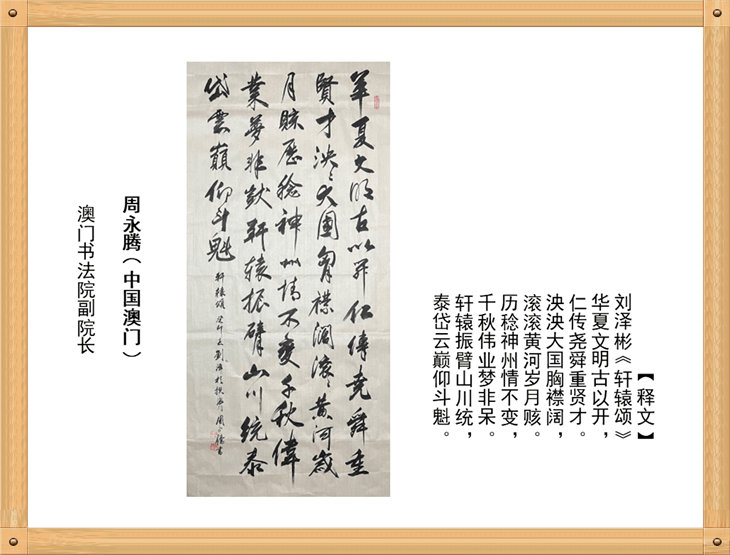 【释文】
刘泽彬《轩辕颂》
华夏文明古以开，
仁传尧舜重贤才。
泱泱大国胸襟阔，
滚滚黄河岁月赅。
历稔神州情不变，
千秋伟业梦非呆。
轩辕振臂山川统，
泰岱云巅仰斗魁。
華夏文明古以开仁傳堯舜重
賢才泱泱大國胸襟阔滚滚黄河歲
月赅歷稔神州情不變千秋偉
業夢非獃轩辕振臂山川统泰
岱雲巔仰斗魁
周永腾（中国澳门）
澳门书法院副院长